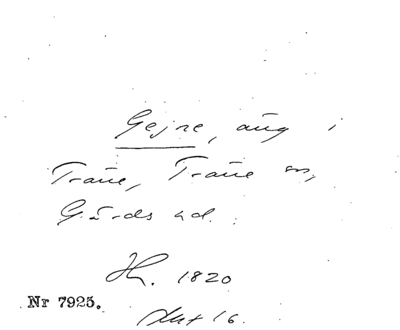 Gejre, äng i
Träne, Träne sn,
Gärds hd.
1820
Nr 7925.
akt 16.